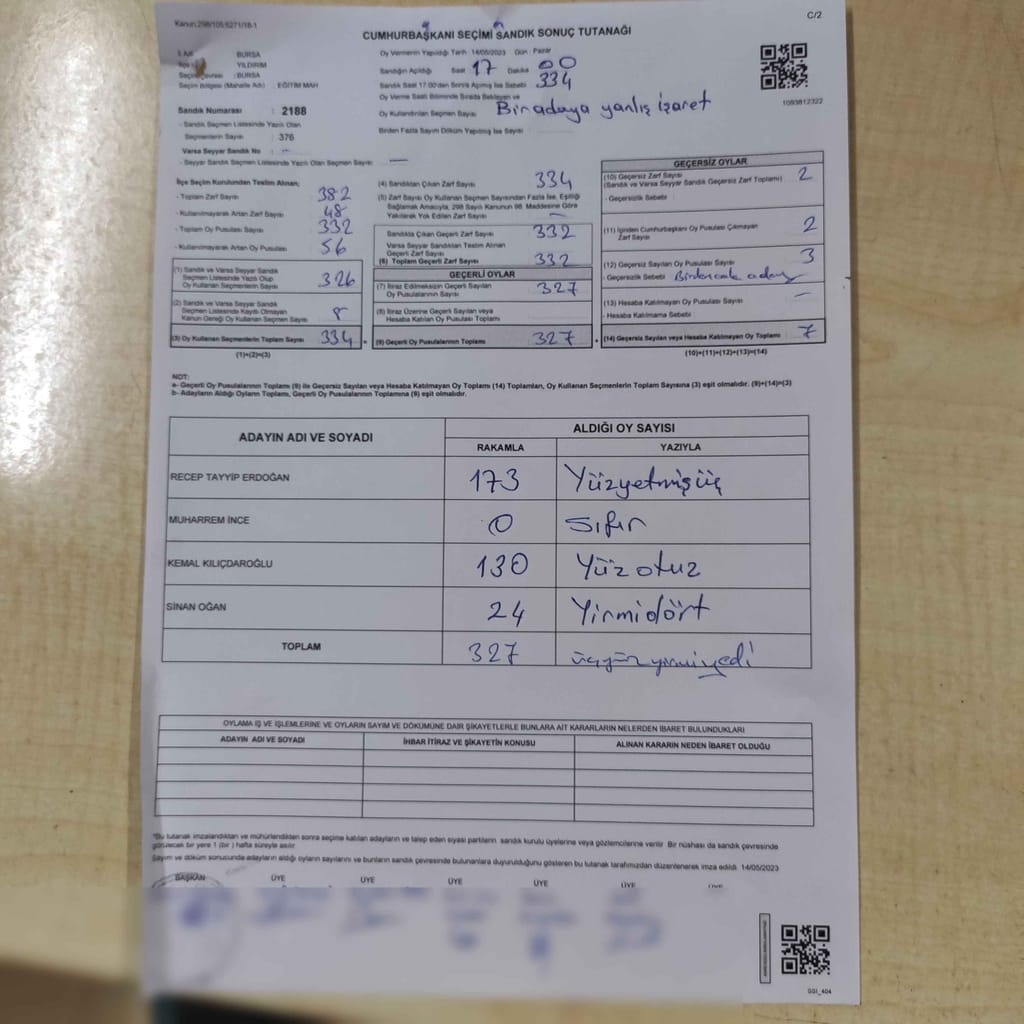 Kanun:298/105;6271/18-1
C/2
CUMHURBAŞKANI SEÇİMİ SANDIK SONUÇ TUTANAĞI
İl Adı : BURSA
YILDIRIM
Seçim Çevresi : BURSA
Seçim Bölgesi (Mahalle Adı) : EĞİTİM MAH
Oy Vermenin Yapıldığı Tarih 14/05/2023 Gün : Pazar
Sandığın Açıldığı Saat 17 Dakika 00
Sandık Saat 17:00'den Sonra Açılmış İse Sebebi 334
Oy Verme Saati Bitiminde Sırada Bekleyen ve
Oy Kullandırılan Seçmen Sayısı Bir adaya yanlış işaret
Birden Fazla Sayım Döküm Yapılmış İse Sayısı
1093812322
Sandık Numarası : 2188
- Sandık Seçmen Listesinde Yazılı Olan
Seçmenlerin Sayısı : 376
Varsa Seyyar Sandık No : -
- Seyyar Sandık Seçmen Listesinde Yazılı Olan Seçmen Sayısı : —
İlçe Seçim Kurulundan Teslim Alınan;
- Toplam Zarf Sayısı 382
- Kullanılmayarak Artan Zarf Sayısı 48
- Toplam Oy Pusulası Sayısı 332
- Kullanılmayarak Artan Oy Pusulası 56
(1) Sandık ve Varsa Seyyar Sandık
Seçmen Listesinde Yazılı Olup
Oy Kullanan Seçmenlerin Sayısı 326
(2) Sandık ve Varsa Seyyar Sandık
Seçmen Listesinde Kayıtlı Olmayan
Kanun Gereği Oy Kullanan Seçmen Sayısı 8
(3) Oy Kullanan Seçmenlerin Toplam Sayısı 334 =
(1)+(2)=(3)
(4) Sandıktan Çıkan Zarf Sayısı 334
(5) Zarf Sayısı Oy Kullanan Seçmen Sayısından Fazla İse, Eşitliği
Sağlamak Amacıyla, 298 Sayılı Kanunun 98. Maddesine Göre
Yakılarak Yok Edilen Zarf Sayısı —
Sandıkta Çıkan Geçerli Zarf Sayısı 332
Varsa Seyyar Sandıktan Teslim Alınan
Geçerli Zarf Sayısı
(6) Toplam Geçerli Zarf Sayısı 332
GEÇERLİ OYLAR
(7) İtiraz Edilmeksizin Geçerli Sayılan
Oy Pusulalarının Sayısı 327
(8) İtiraz Üzerine Geçerli Sayılan veya
Hesaba Katılan Oy Pusulası Toplamı
(9) Geçerli Oy Pusulalarının Toplamı 327 +
GEÇERSİZ OYLAR
(10) Geçersiz Zarf Sayısı 2
(Sandık ve Varsa Seyyar Sandık Geçersiz Zarf Toplamı)
- Geçersizlik Sebebi :
(11) İçinden Cumhurbaşkanı Oy Pusulası Çıkmayan
Zarf Sayısı 2
(12) Geçersiz Sayılan Oy Pusulası Sayısı 3
- Geçersizlik Sebebi
(13) Hesaba Katılmayan Oy Pusulası Sayısı —
- Hesaba Katılmama Sebebi
(14) Geçersiz Sayılan veya Hesaba Katılmayan Oy Toplamı 7
(10)+(11)+(12)+(13)=(14)
NOT:
a- Geçerli Oy Pusulalarının Toplamı (9) ile Geçersiz Sayılan veya Hesaba Katılmayan Oy Toplamı (14) Toplamları, Oy Kullanan Seçmenlerin Toplam Sayısına (3) eşit olmalıdır. (9)+(14)=(3)
b- Adayların Aldığı Oyların Toplamı, Geçerli Oy Pusulalarının Toplamına (9) eşit olmalıdır.
ADAYIN ADI VE SOYADI
ALDIĞI OY SAYISI
RAKAMLA YAZIYLA
RECEP TAYYİP ERDOĞAN 173 Yüzyetmişüç
MUHARREM İNCE 0 Sıfır
KEMAL KILIÇDAROĞLU 130 Yüzotuz
SİNAN OĞAN 24 Yirmidört
TOPLAM 327 üçyüzyirmiyedi
OYLAMA İŞ VE İŞLEMLERİNE VE OYLARIN SAYIM VE DÖKÜMÜNE DAİR ŞİKAYETLERLE BUNLARA AİT KARARLARIN NELERDEN İBARET BULUNDUKLARI
ADAYIN ADI VE SOYADI İHBAR İTİRAZ VE ŞİKAYETİN KONUSU ALINAN KARARIN NEDEN İBARET OLDUĞU
*Bu tutanak imzalandıktan ve mühürlendikten sonra seçime katılan adayların ve talep eden siyasi partilerin sandık kurulu üyelerine veya gözlemcilerine verilir. Bir nüshası da sandık çevresinde
görülecek bir yere 1 (bir ) hafta süreyle asılır.
Sayım ve döküm sonucunda adayların aldığı oyların sayılarını ve bunların sandık çevresinde bulunanlara duyurulduğunu gösteren bu tutanak tarafımızdan düzenlenerek imza edildi. 14/05/2023
BAŞKAN ÜYE ÜYE ÜYE ÜYE ÜYE ÜYE
SSI_404